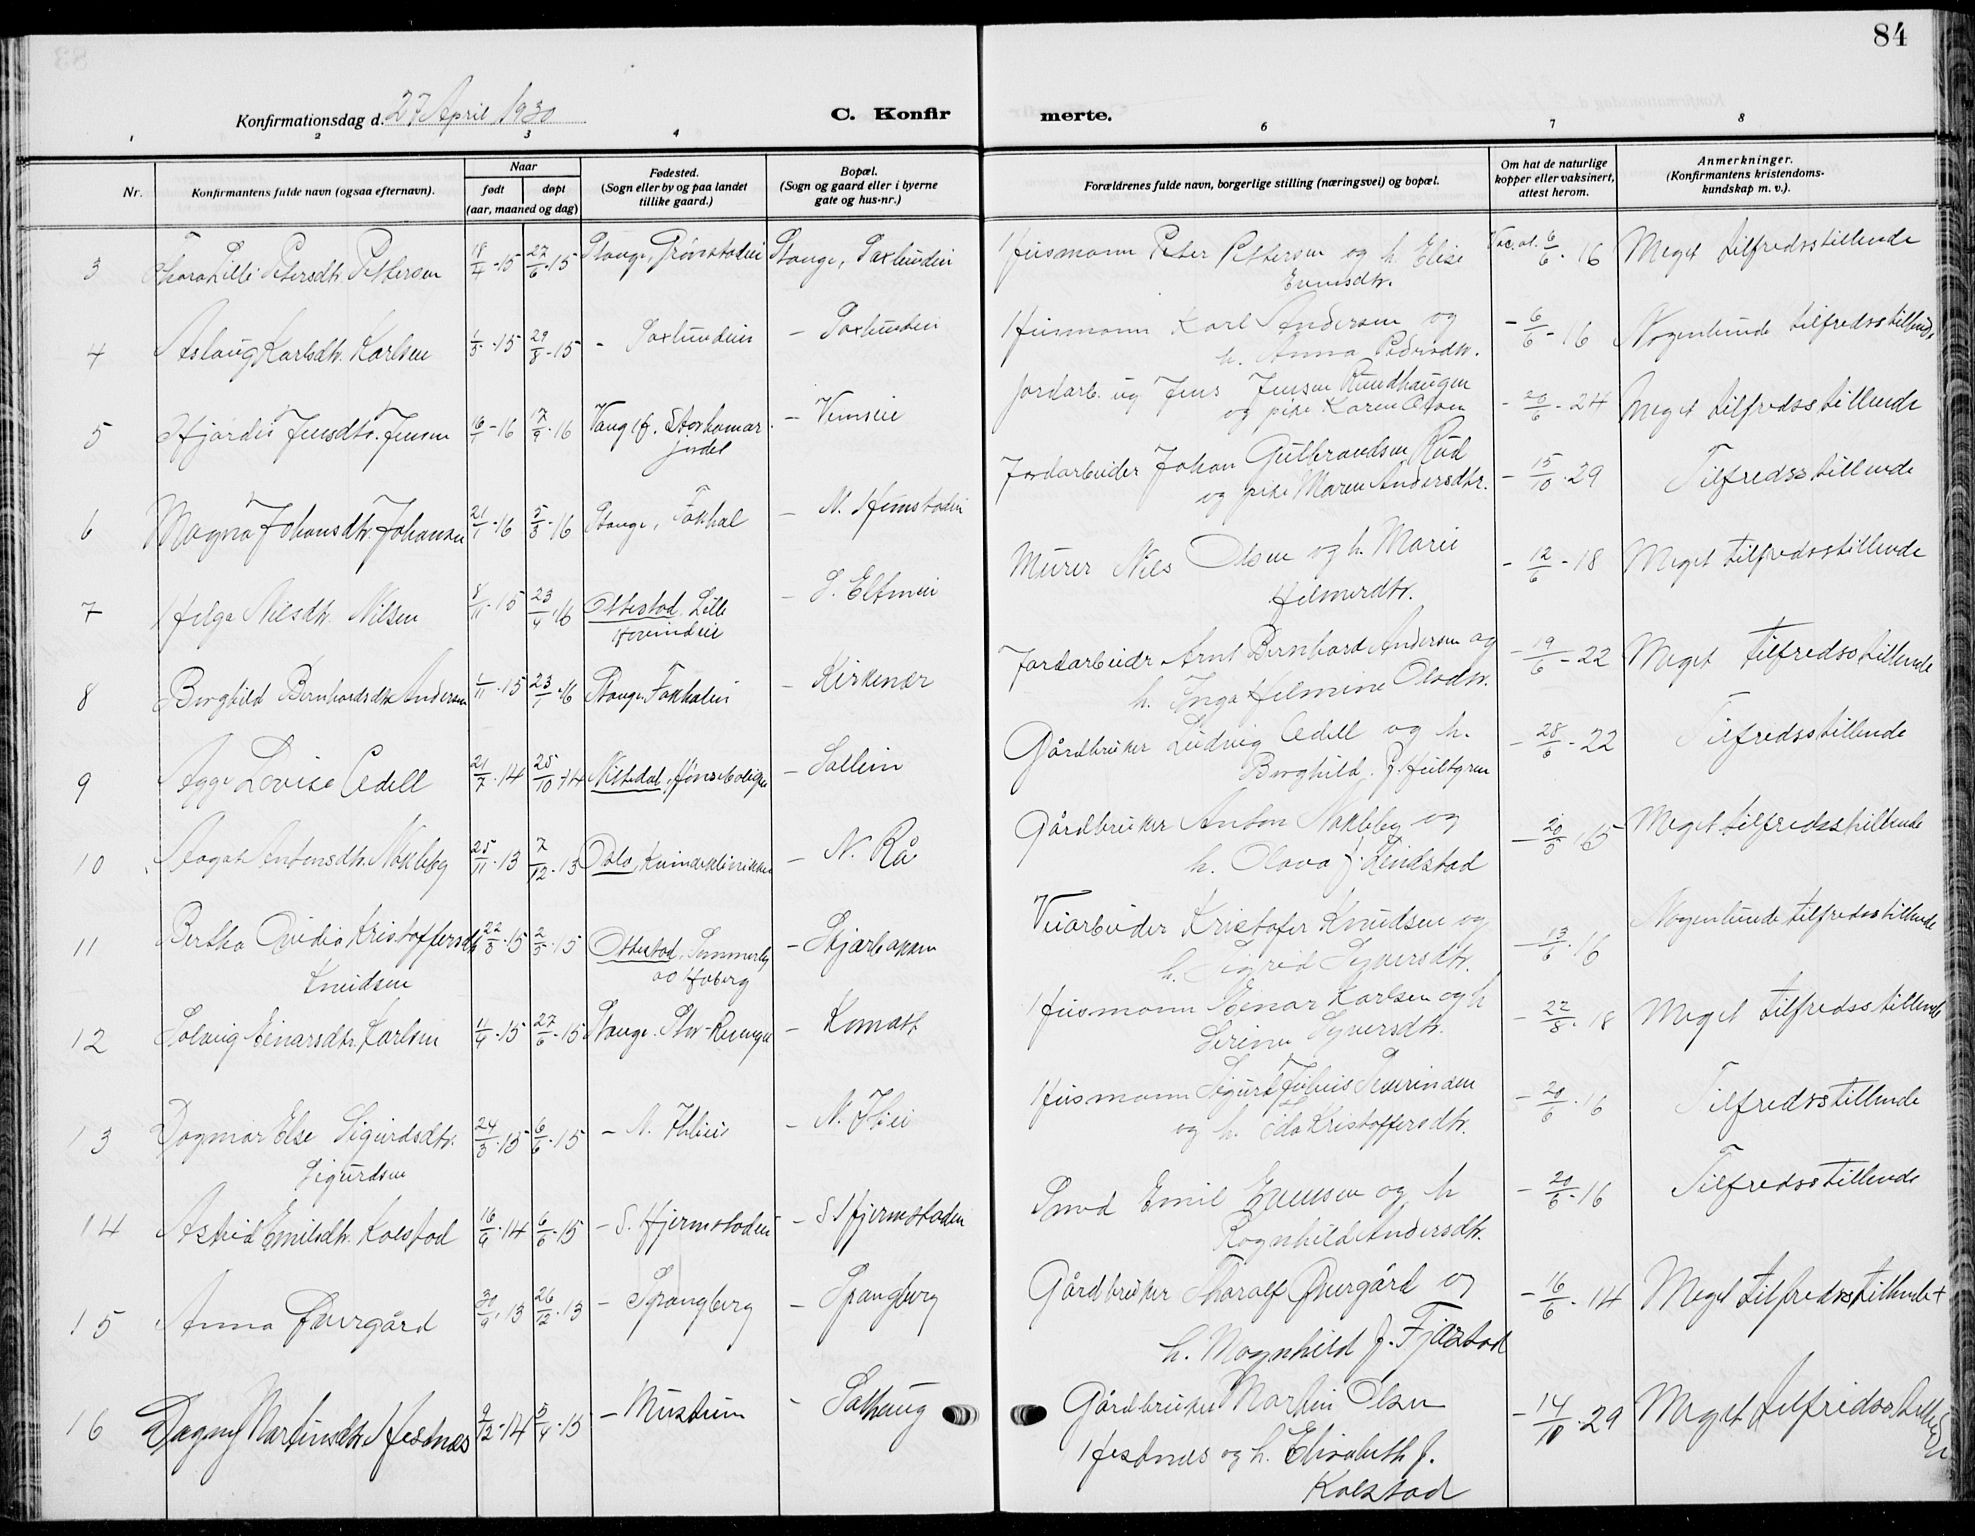 84
Konfirmationsdag d. 27 April 1930
C. Konfirmerte.
1 2 3 4 6 7 8
Nr.
Konfirmantens fulde navn (ogsaa efternavn).
Naar
født
døpt
(aar, maaned og dag)
Fødested.
(Sogn eller by og paa landet
tillike gaard.)
Bopæl.
(Sogn og gaard eller i byerne
gate og hus-nr.)
Forældrenes fulde navn, borgerlige stilling (næringsvei) og bopæl.
Om hat de naturlige
kopper eller vaksinert,
attest herom.
Anmerkninger.
(Konfirmantens kristendoms-
kundskap m. v.).
3 Petersdtr. Pettersen 27/6 15 Stange, Stange, Husmann Peter Pettersen og h. Elise 6/6 - 16 Meget tilfredsstillende
Evensdtr.
4 Aslaug Karlsdtr. Karlsen 1/5 - 15 29/8 - 15 - Saxlundeie - Saxlundeie Husmann Karl Andersen og - 6/6 - 16 Nogenlunde tilfredsstillende
h. Anna Pedersdtr.
5 Hjørdis Jensdtr. Jensen 16/1 - 16 17/9 - 16 Vang Storhamar - Jordarb. ug Jens Jensen Rundhaugen - 20/6 - 24 Meget tilfredsstillende
jordet og pike Karen Olsen
6 Magna Johansdtr. Johansen 21/1 - 16 5/3 - 16 Stange, Jordarbeider Johan Gulbrandsen Rud - 15/10 - 29 Tilfredsstillende
og pike Maren Andersdtr.
7 Helga Nilsdtr. Nilsen 8/11 - 15 23/4 - 16 Ottestad, Lille - S. Murer Nils Olsen og h. Marie - 12/6 - 18 Meget tilfredsstillende
Hovindeie Helmerdtr.
8 Borghild Bernhardsdtr. Andersen 15 23/1 - 16 Stange - Kirkenær Jordarbeider Arnt Bernhard Andersen og - 19/6 - 22 Meget tilfredsstillende
h. Inga Helmine Olsdtr.
9 Agge Lovise Odell 21/7 - 14 25/10 - 14 Nittedal, - Sollein Gårdbruker Ludvig Odell og h. - 28/6 - 22 Tilfredsstillende
Borghild f. Hultgren
10 Aagot Antonsdtr. Nokleby 25/11 - 13 7/12 - 13 Oslo, Kvindeklinikken - N. Rå Gårdbruker Anton Nokleby og - 20/5 - 15 Meget tilfredsstillende
h. Olava f. Lindstad
11 Bertha Ovidia Kristoffersdtr. 22/3 - 15 2/5 - 15 Ottestad, Sommerly - Skjærbakken Veiarbeider Kristofer Knudsen og - 13/6 - 16 Nogenlunde tilfredsstillende
Knudsen Hoberg h. Sigrid Syversdtr.
12 Solveig Einarsdtr. Karlsen 15 27/6 - 15 Stange - Husmann Einar Karlsen og h. - 22/8 - 18 Meget tilfredsstillende
Syversdtr.
13 Dagmar Else Sigurdsdtr. 24/3 - 15 6/6 - 15 - N. - N. Husmann Sigurd og h. Ida Kristoffersdtr. - 20/6 - 16 Tilfredsstillende
Sigurdsen
14 Astrid Emilsdtr. Kolstad 16/9 - 14 6/6 - 15 - S. Hjermstadeie - S. Hjermstadeie Smed Emil Evensen og h. - 20/6 - 16 Tilfredsstillende
Ragnhild Andersdtr.
15 Anna Øvergård 30/9 - 13 26/12 - 13 - Spangberg - Spangberg Gårdbruker Tharalf Øvergård og - 16/6 - 14 Meget tilfredsstillende +
h. Magnhild f. Fjæstad
16 Dagny Martinsdtr. Hestnæs 9/12 - 14 5/4 - 15 - - Solhaug Gårdbruker Martin Olsen - 14/10 - 29 Meget tilfredsstillende
Hestnæs og h. Elisabeth f.
Kolstad